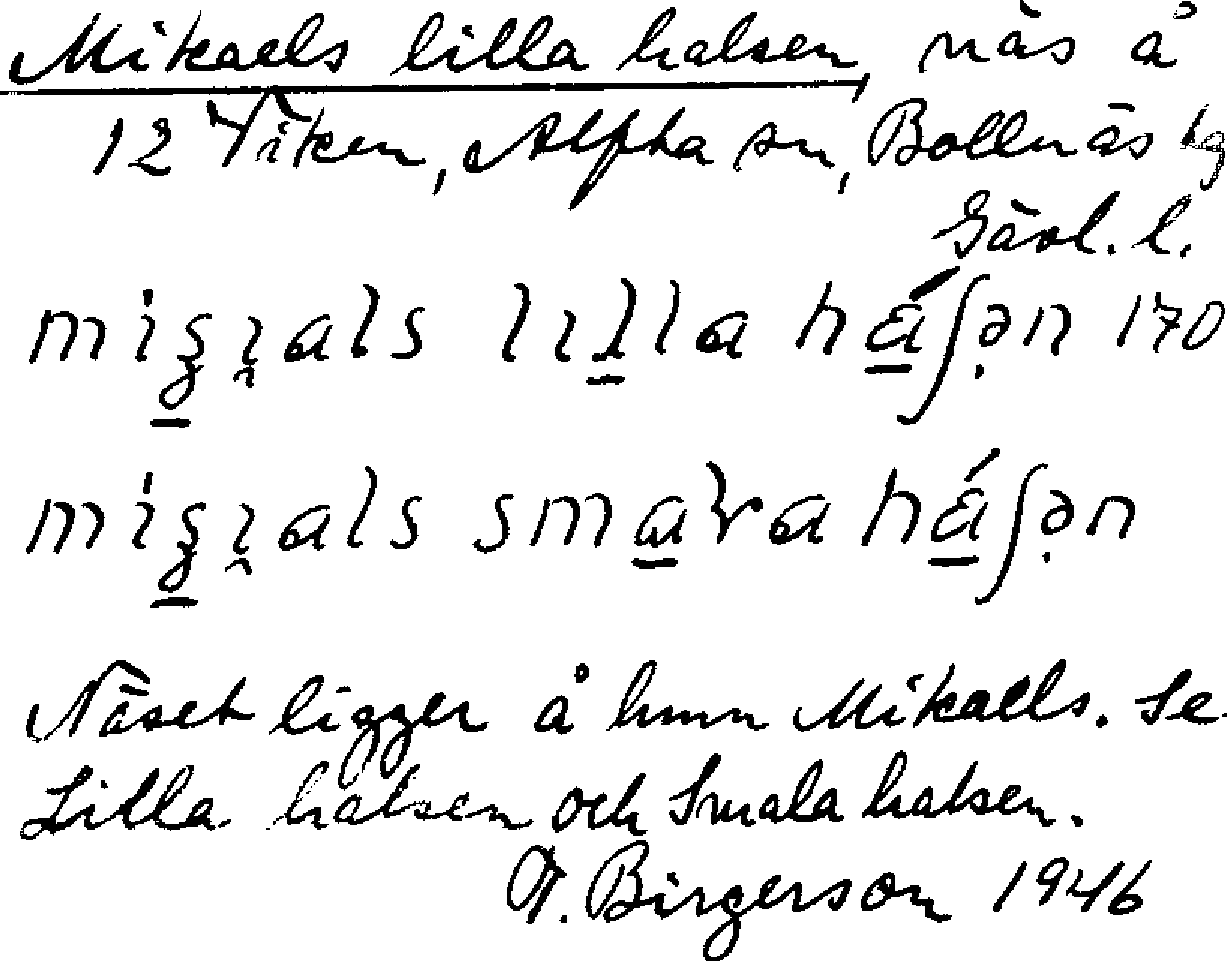 Mikaels lilla halsen, näs å
12 Viken, Alfta sn, Bollnäs tg
Gävl. l.
lılla 170
Näset ligger å hmn Mikaels. Se
Lilla halsen och Smala halsen.
G. Birgerson 1946